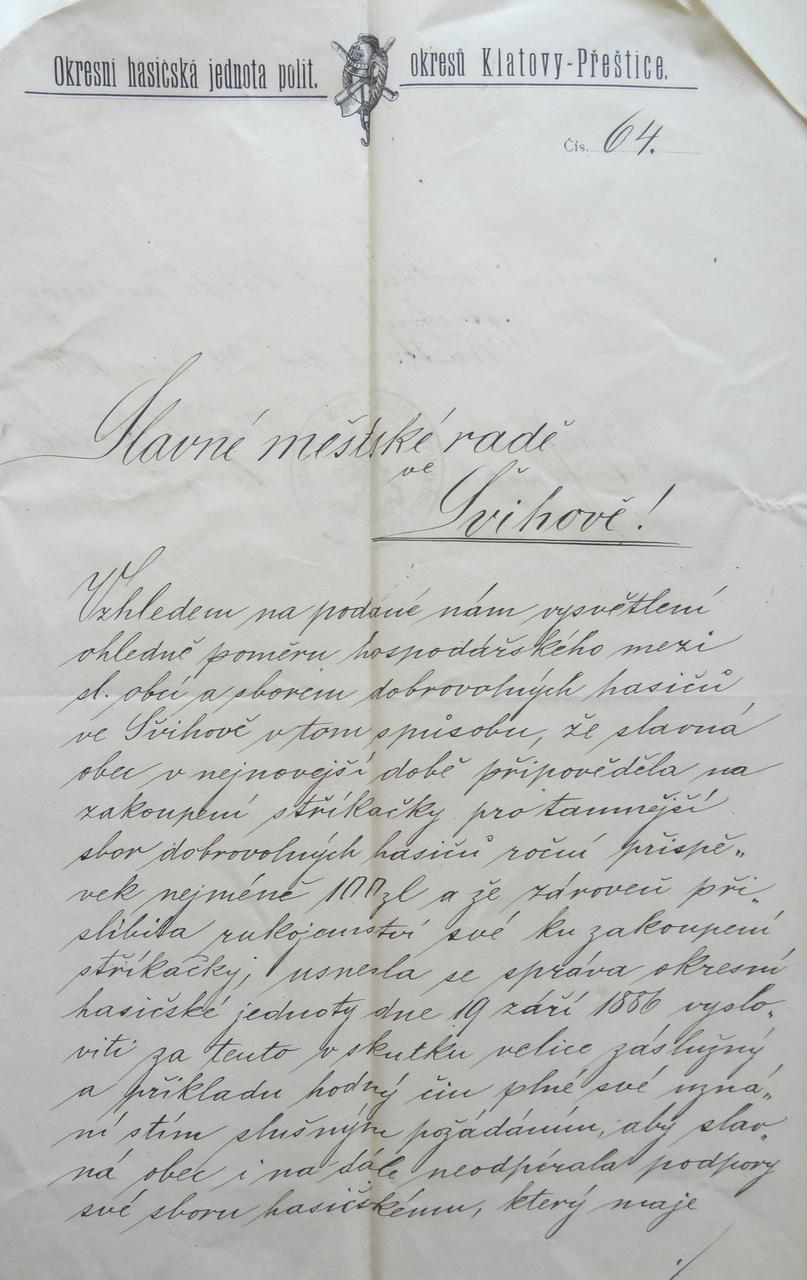 Okresní hasičská jednota polit. okresů Klatovy-Přeštice.
Čís. 64.
Slavné městské radě
ve
Švihově!
Vzhledem na podané nám vysvětlení
ohledně poměru hospodářského mezi
sl. obcí a sborem dobrovolných hasičů
ve Švihově v tom spůsobu, že slavná
obec v nejnovejší době připověděla na
zakoupení stříkačky pro tamnější
sbor dobrovolných hasičů roční příspě„
vek nejméně 100 zl a že zároveň při„
slíbila rukojemství své ku zakoupení
stříkačky, usnesla se správa okresní
hasičské jednoty dne 19 září 1886 vyslo„
viti za tento v skutku velice záslužný
a příkladu hodný čin plné své uzná„
ní s tím slušným požádáním, aby slav„
ná obec i na dále neodpírala podpory
své sboru hasičskému, který maje
./